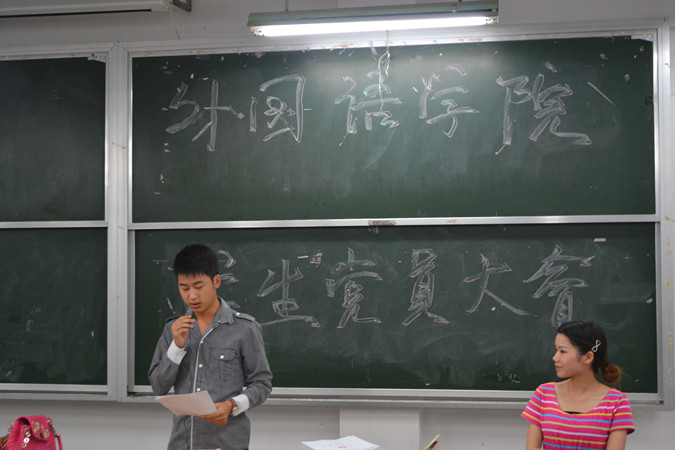 外国语学院
学生党员大會